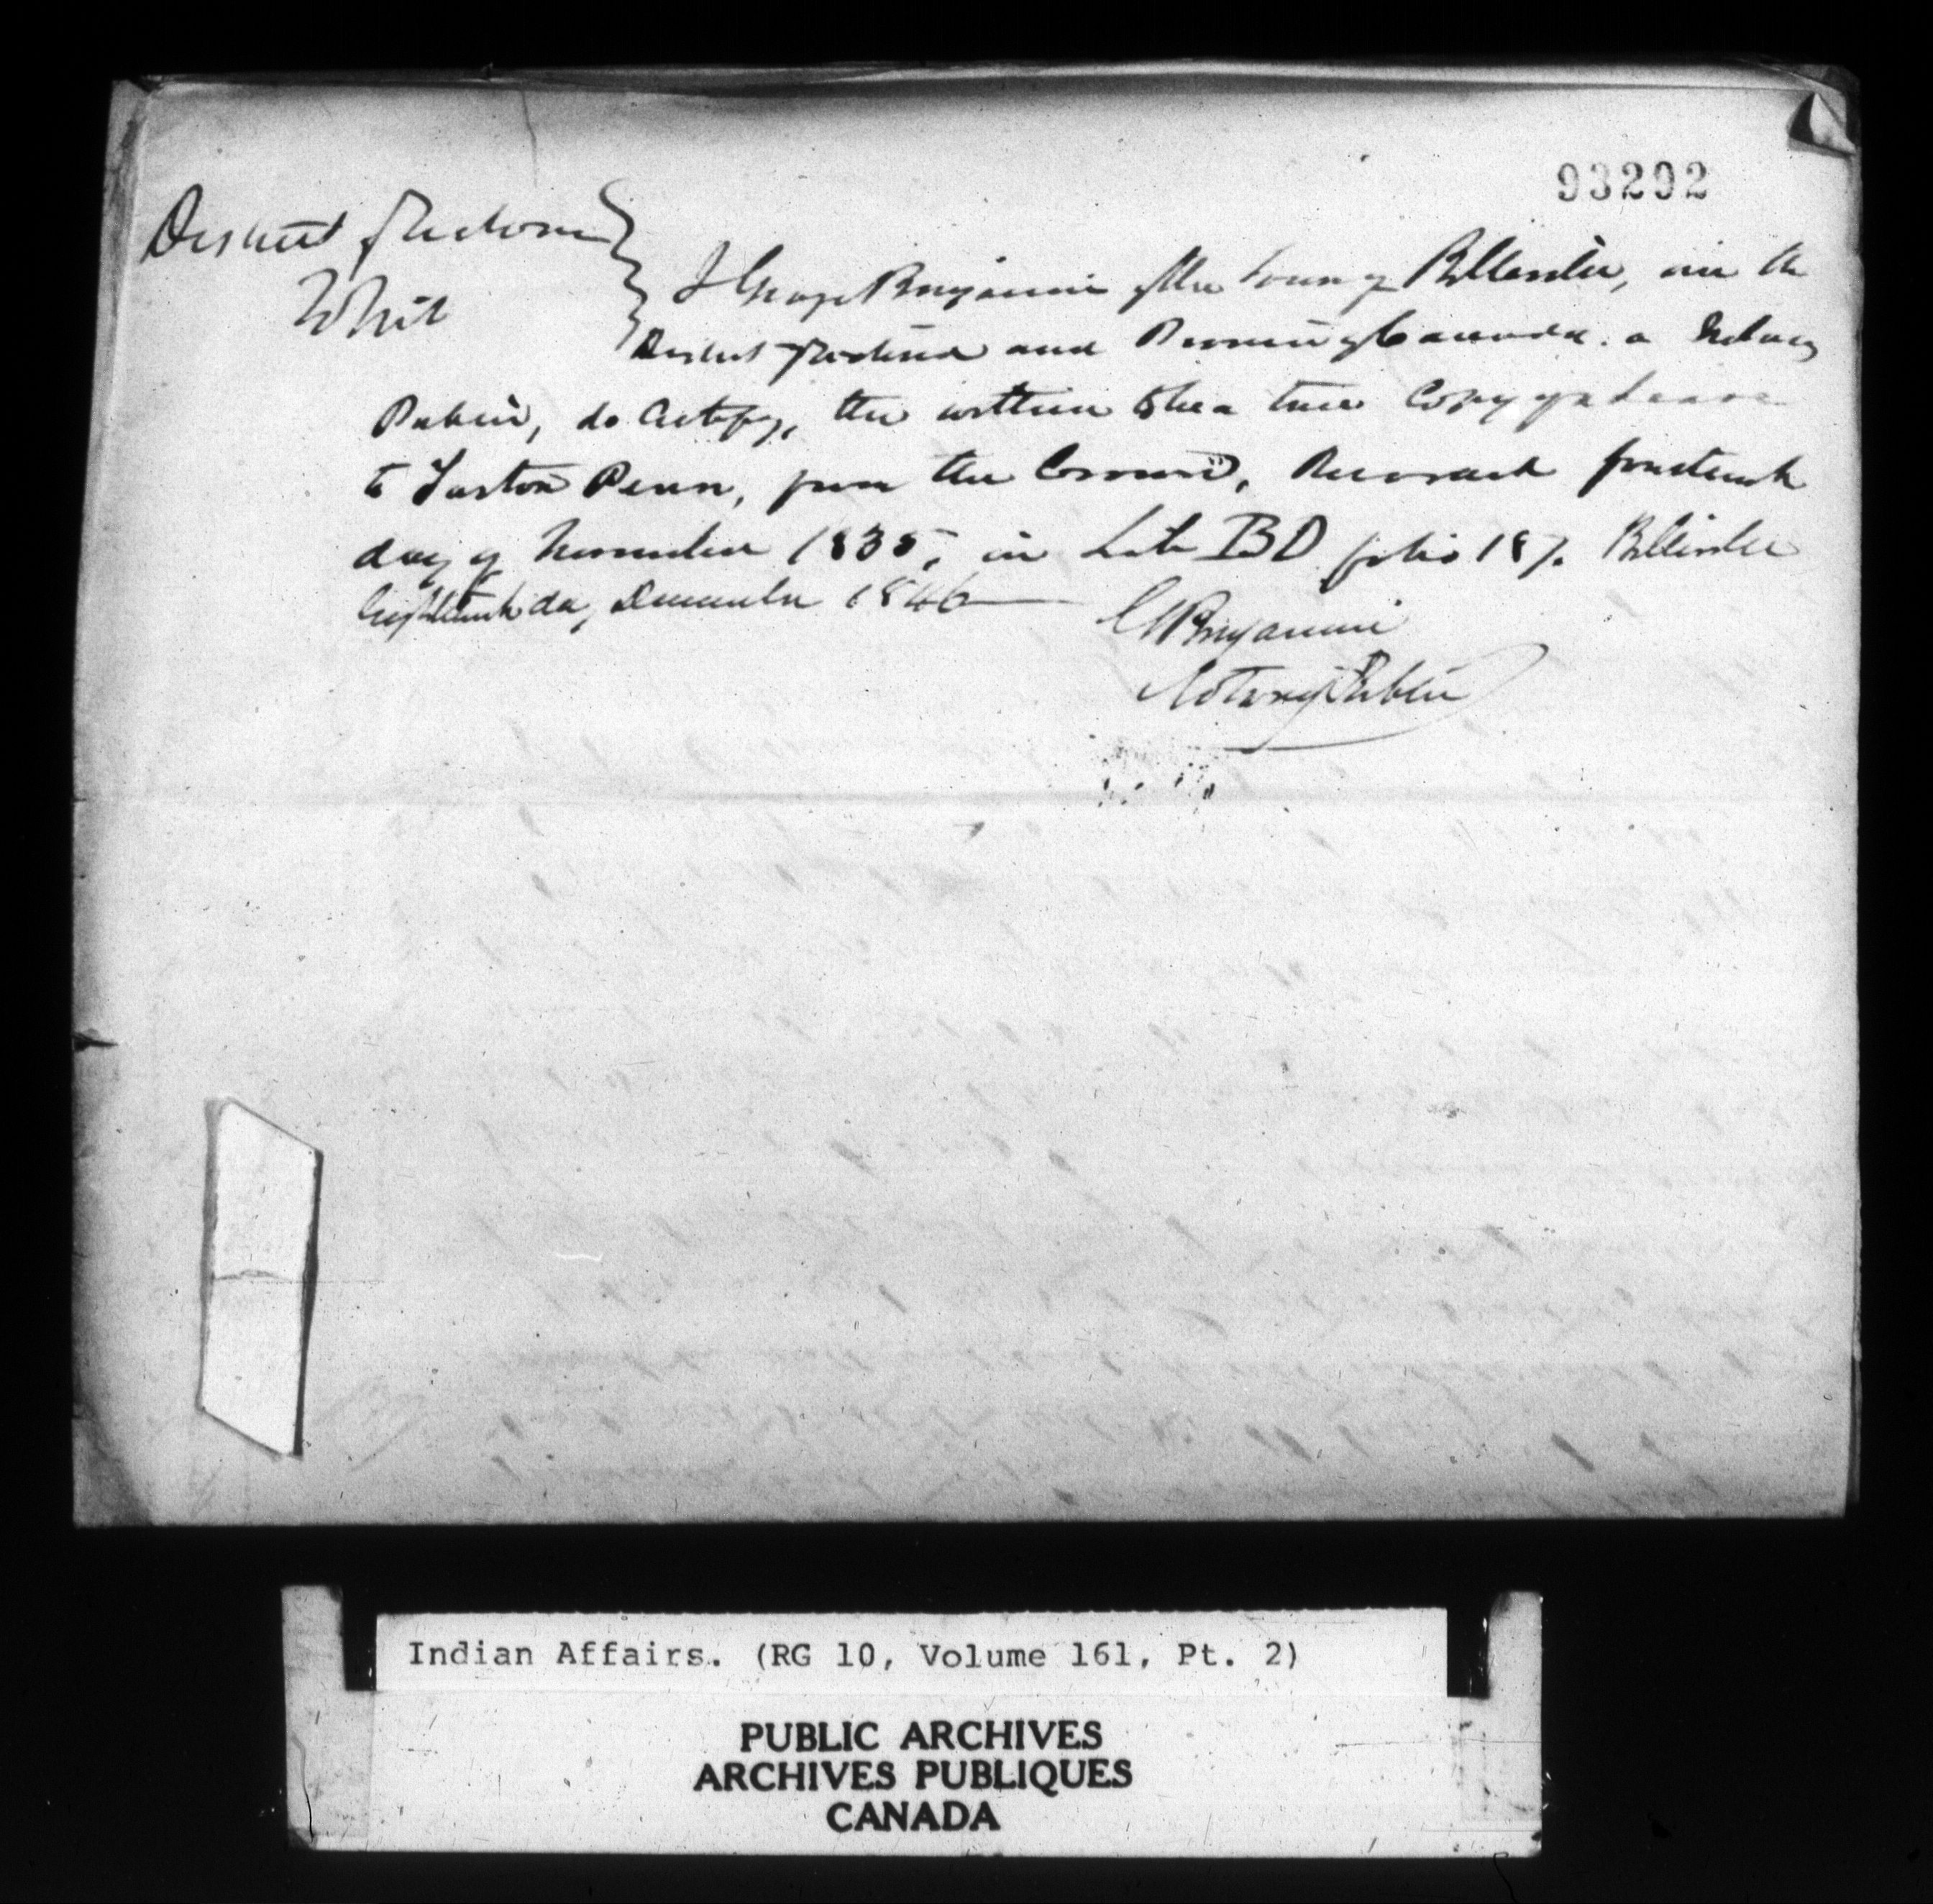 93292
District of Victoria
To Wit
I George Benjamin of the Town of Belleville, in the
District of Victoria and Province of Canada. a Notary
Public, do Certify, the within to be a true Copy of a Lease
to Turton Penn, from the Crown, Recorded fourteenth
day of November 1835, in Lib BD folio 187. Belleville
Eighteenth day December 1846
G Benjamin
Notary Public
Indian Affairs. (RG 10, Volume 161, Pt. 2)
PUBLIC ARCHIVES
ARCHIVES PUBLIQUES
CANADA